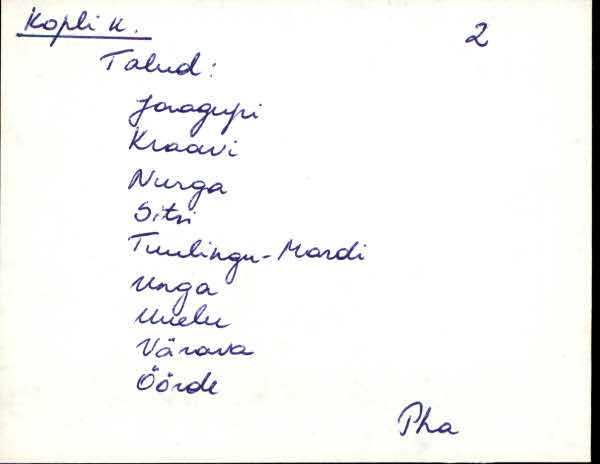 Kopli k. 2
Talud:
Jaagupi
Kraavi
Nurga
Sitsi
Tuulingu-Mardi
Unga
Uuelu
Värava
Öörde
Pha